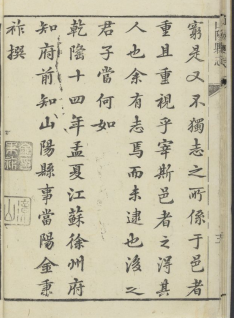 窮是又不獨志之所係于邑者
重且重視乎宰斯邑者之得其
人也余有志焉而未逮也後之
君子當何如
乾隆十四年孟夏江蘇徐州府
知府前知山陽縣事當陽金秉
祚撰